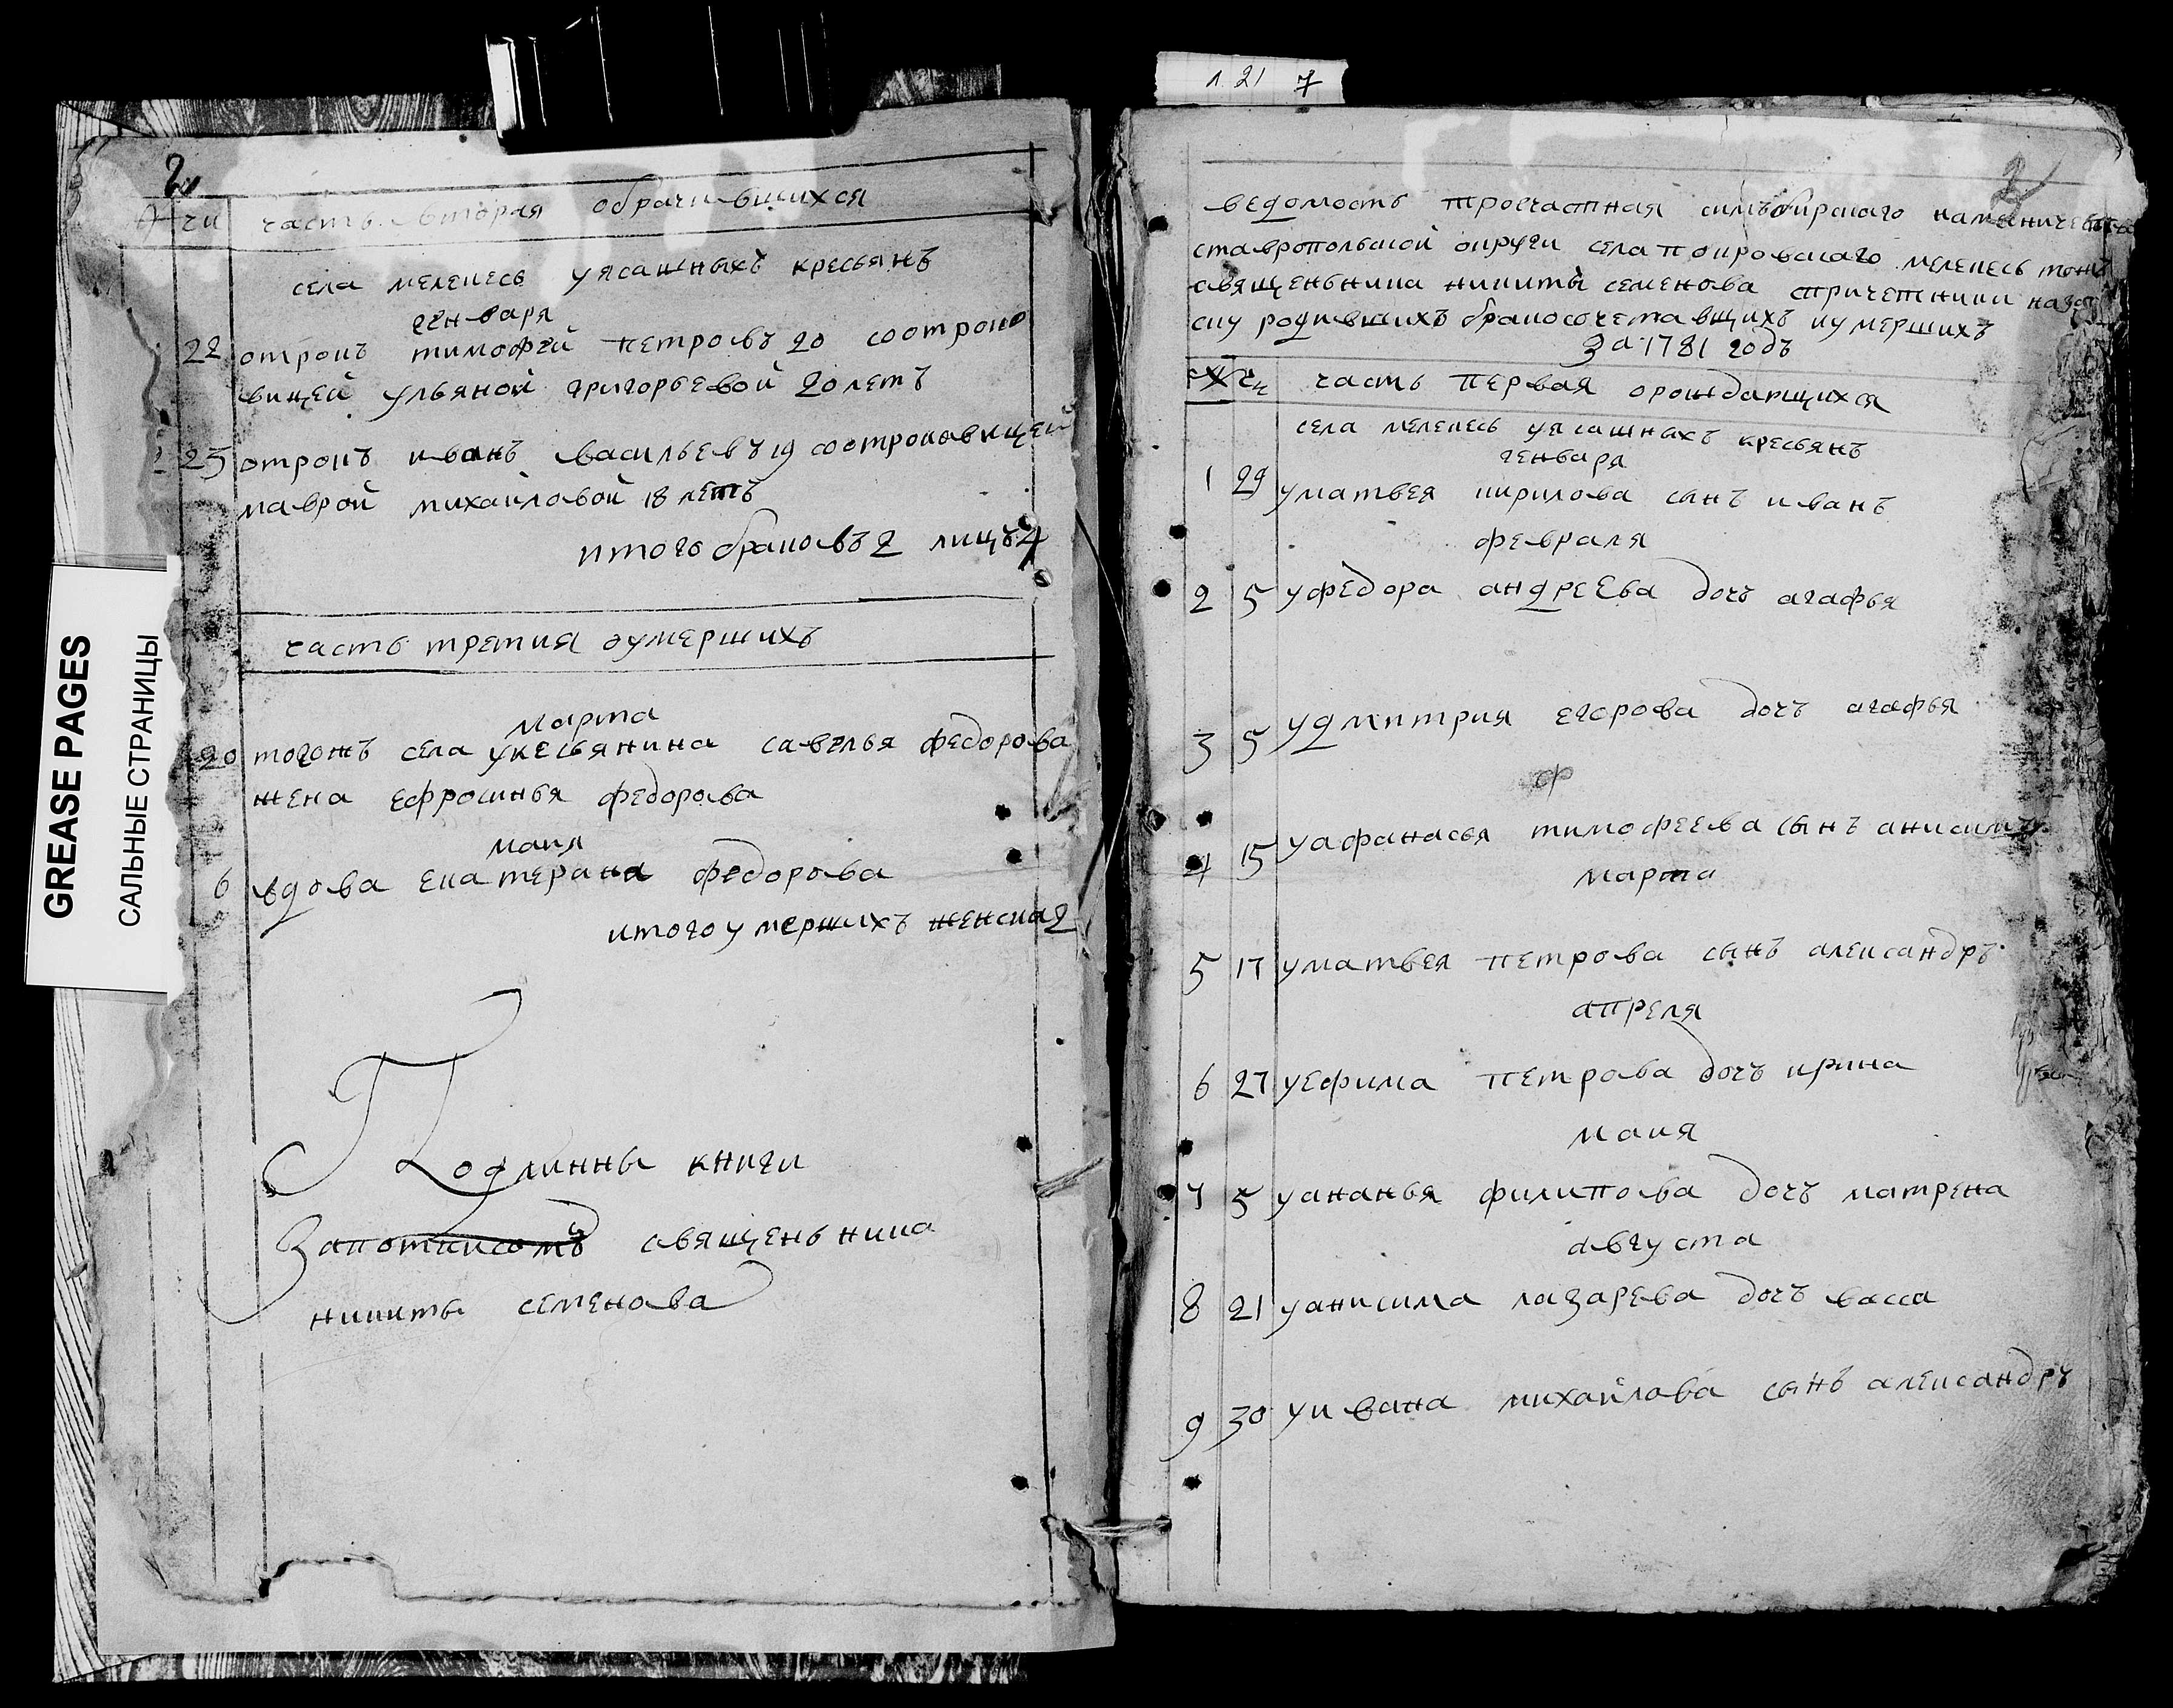 л. 21 7
2
чи часть вторая обрачившихся
села мелекесь уясашныхъ кресьянъ
генваря
22 отрокъ тимофей петровъ 20 соотроко
вицей ульяной григорьевой 20 летъ
2 25 отрокъ иванъ васильевъ 19 соотроковицей
маврой михайловой 18 летъ
итого браковъ 2 лицъ 4
часть третия оумершихъ
марта
20 тогожъ села укесьянина савелья федорова
жена ефросинья федорова
маия
6 вдова екатерина федорова
итого умершихъ женска 2
Подлинны книги
Запоткисомъ священьника
никиты семенова
GREASE PAGES
САЛЬНЫЕ СТРАНИЦЫ
2
ведомость троечастная симъбирскаго намѣничества
ставропольской округи села покровскаго мелекесь тожъ
священьника никиты семенова спричетники
сиу родившихъ бракосочетавщихъ иумершихъ
За 1781 годъ
чи часть первая орождающихся
села мелекесь уясашныхъ кресьянъ
генваря
1 29 уматвея кирилова сынъ иванъ
февраля
2 5 уфедора андреева дочь агафья
3 5 удмитрия егорова дочь агафья
ф
4 15 уафанасья тимофеева сынъ анисимъ
марта
5 17 уматвея петрова сынъ александръ
апреля
6 27 уефима петрова дочь ирина
маия
7 5 уананья филипова дочь матрена
августа
8 21 уанисима лазарева дочь васса
9 30 уивана михайлова сынъ александръ